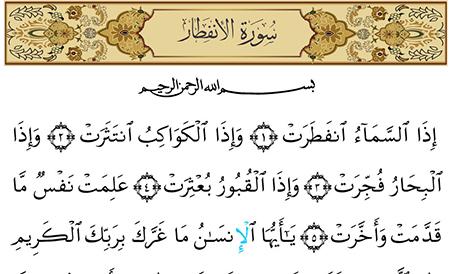 سُورَةُ الِانفِطَارِ
بِسْمِ اللهِ الرَّحْمَنِ الرَّحِيمِ
إِذَا السَّمَآءُ انفَطَرَتْ ﴿١﴾ وَإِذَا الْكَوَاكِبُ انتَثَرَتْ ﴿٢﴾ وَإِذَا
الْبِحَارُ فُجِّرَتْ ﴿٣﴾ وَإِذَا الْقُبُورُ بُعْثِرَتْ ﴿٤﴾ عَلِمَتْ نَفْسٌ مَّا
قَدَّمَتْ وَأَخَّرَتْ ﴿٥﴾ يَٰٓأَيُّهَا الْإِنسَٰنُ مَا غَرَّكَ بِرَبِّكَ الْكَرِيمِ